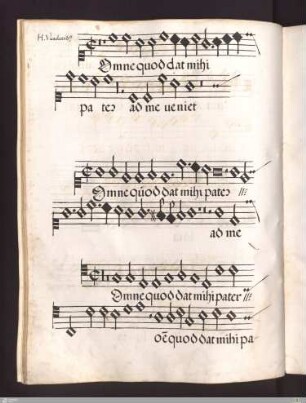 Omne quod dat mihi
pater ad me veniet
Omne quod dat mihi pater
ad me
Omne quod dat mihi pater
oē quod dat mihi pa